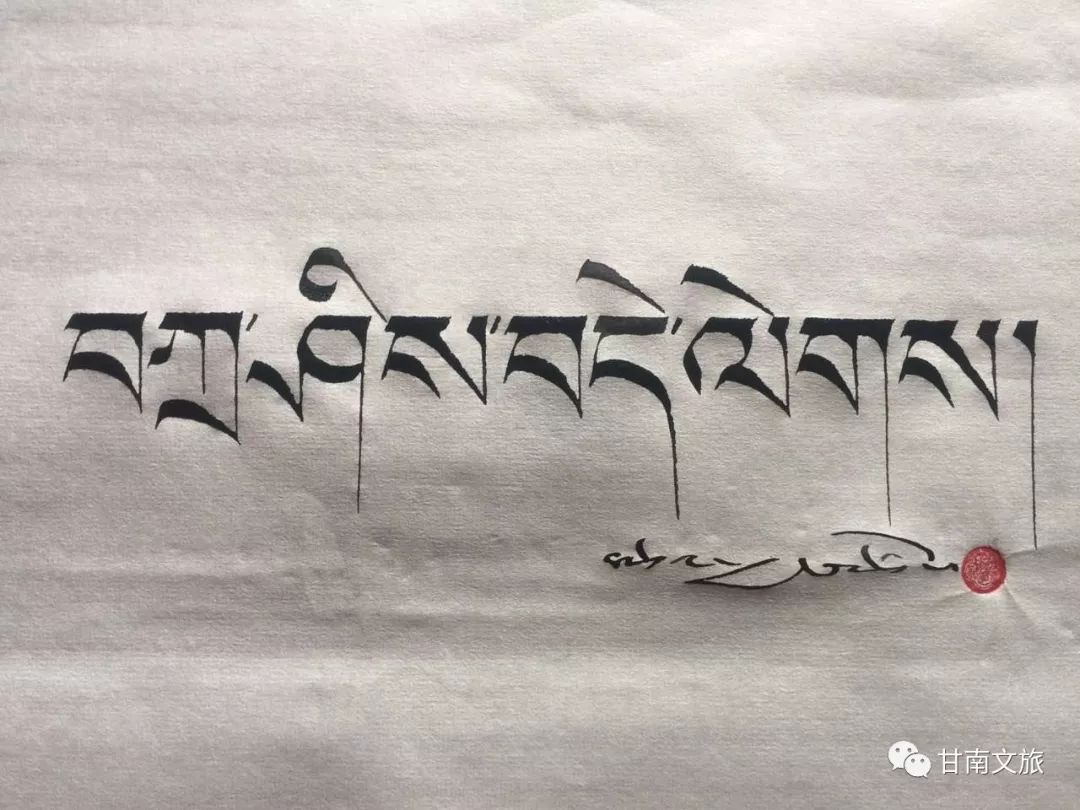 བཀྲ་ཤིས་བདེ་ལེགས།
甘南文旅